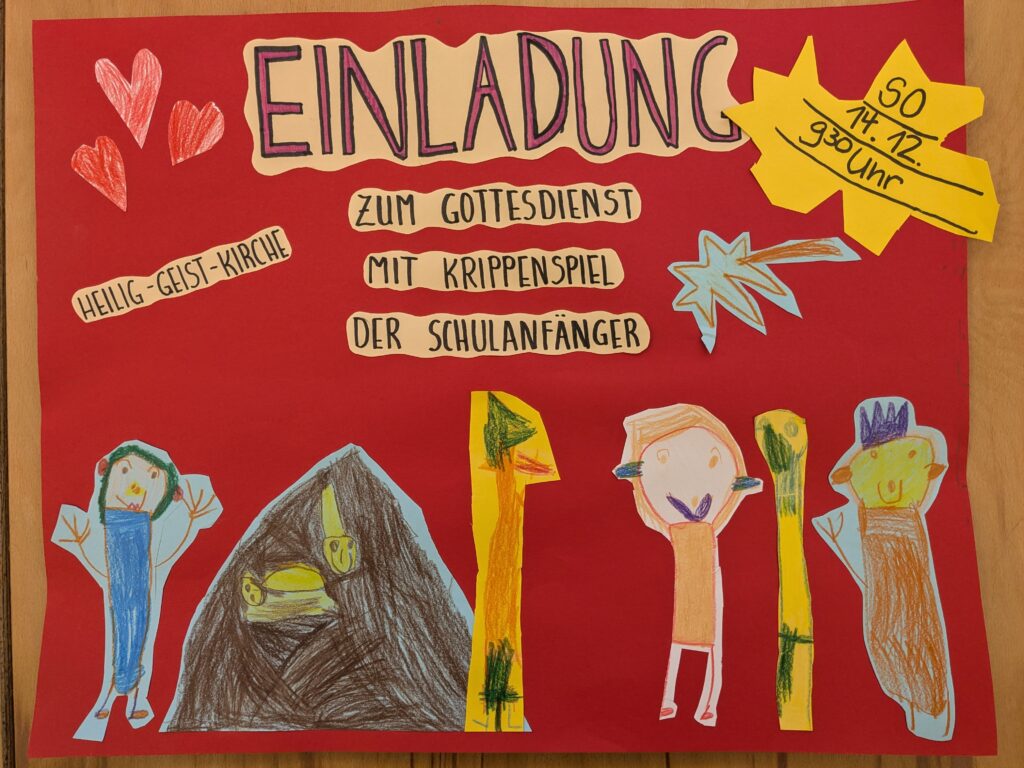 EINLADUNG
SO
14. 12.
930 Uhr
ZUM GOTTESDIENST
MIT KRIPPENSPIEL
DER SCHULANFÄNGER
HEILIG-GEIST-KIRCHE